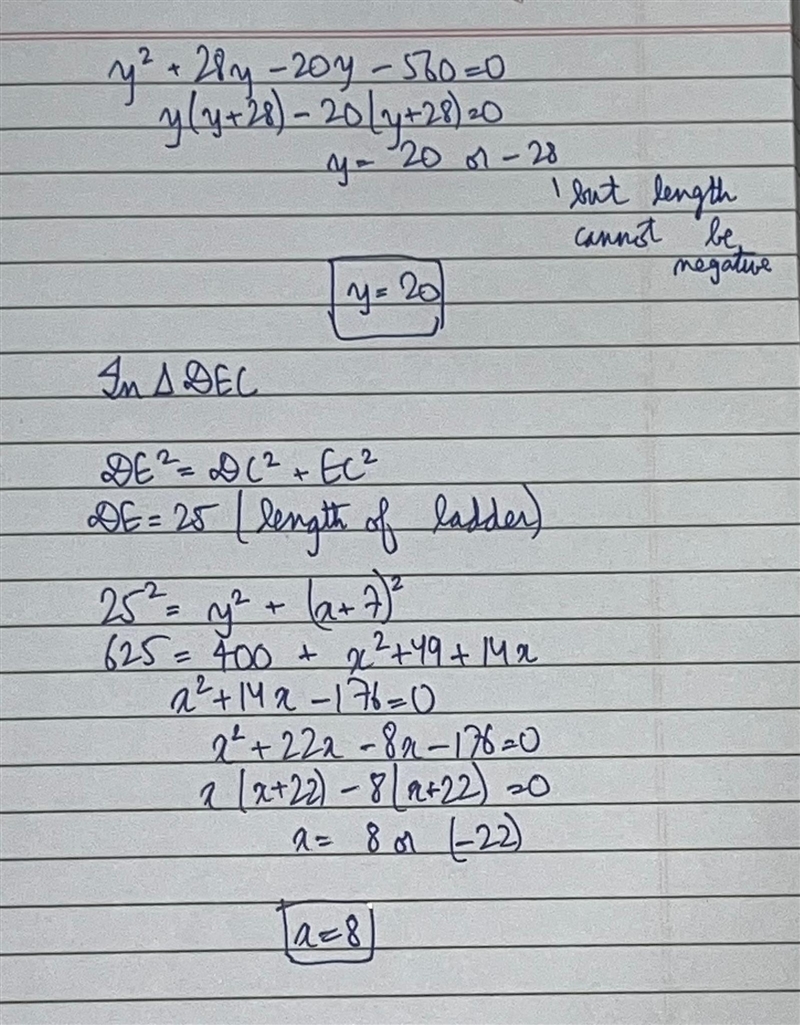 y² + 28y - 20y - 560 = 0
y(y+28) - 20(y+28) = 0
y = 20 or - 28
but length
cannot be
negative
y = 20
In Δ DEC
DE² = DC² + EC²
DE = 25 (length of ladder)
25² = y² + (x+7)²
625 = 400 + x² + 49 + 14x
x² + 14x - 176 = 0
x² + 22x - 8x - 176 = 0
x (x+22) - 8(x+22) = 0
x = 8 or (-22)
x = 8